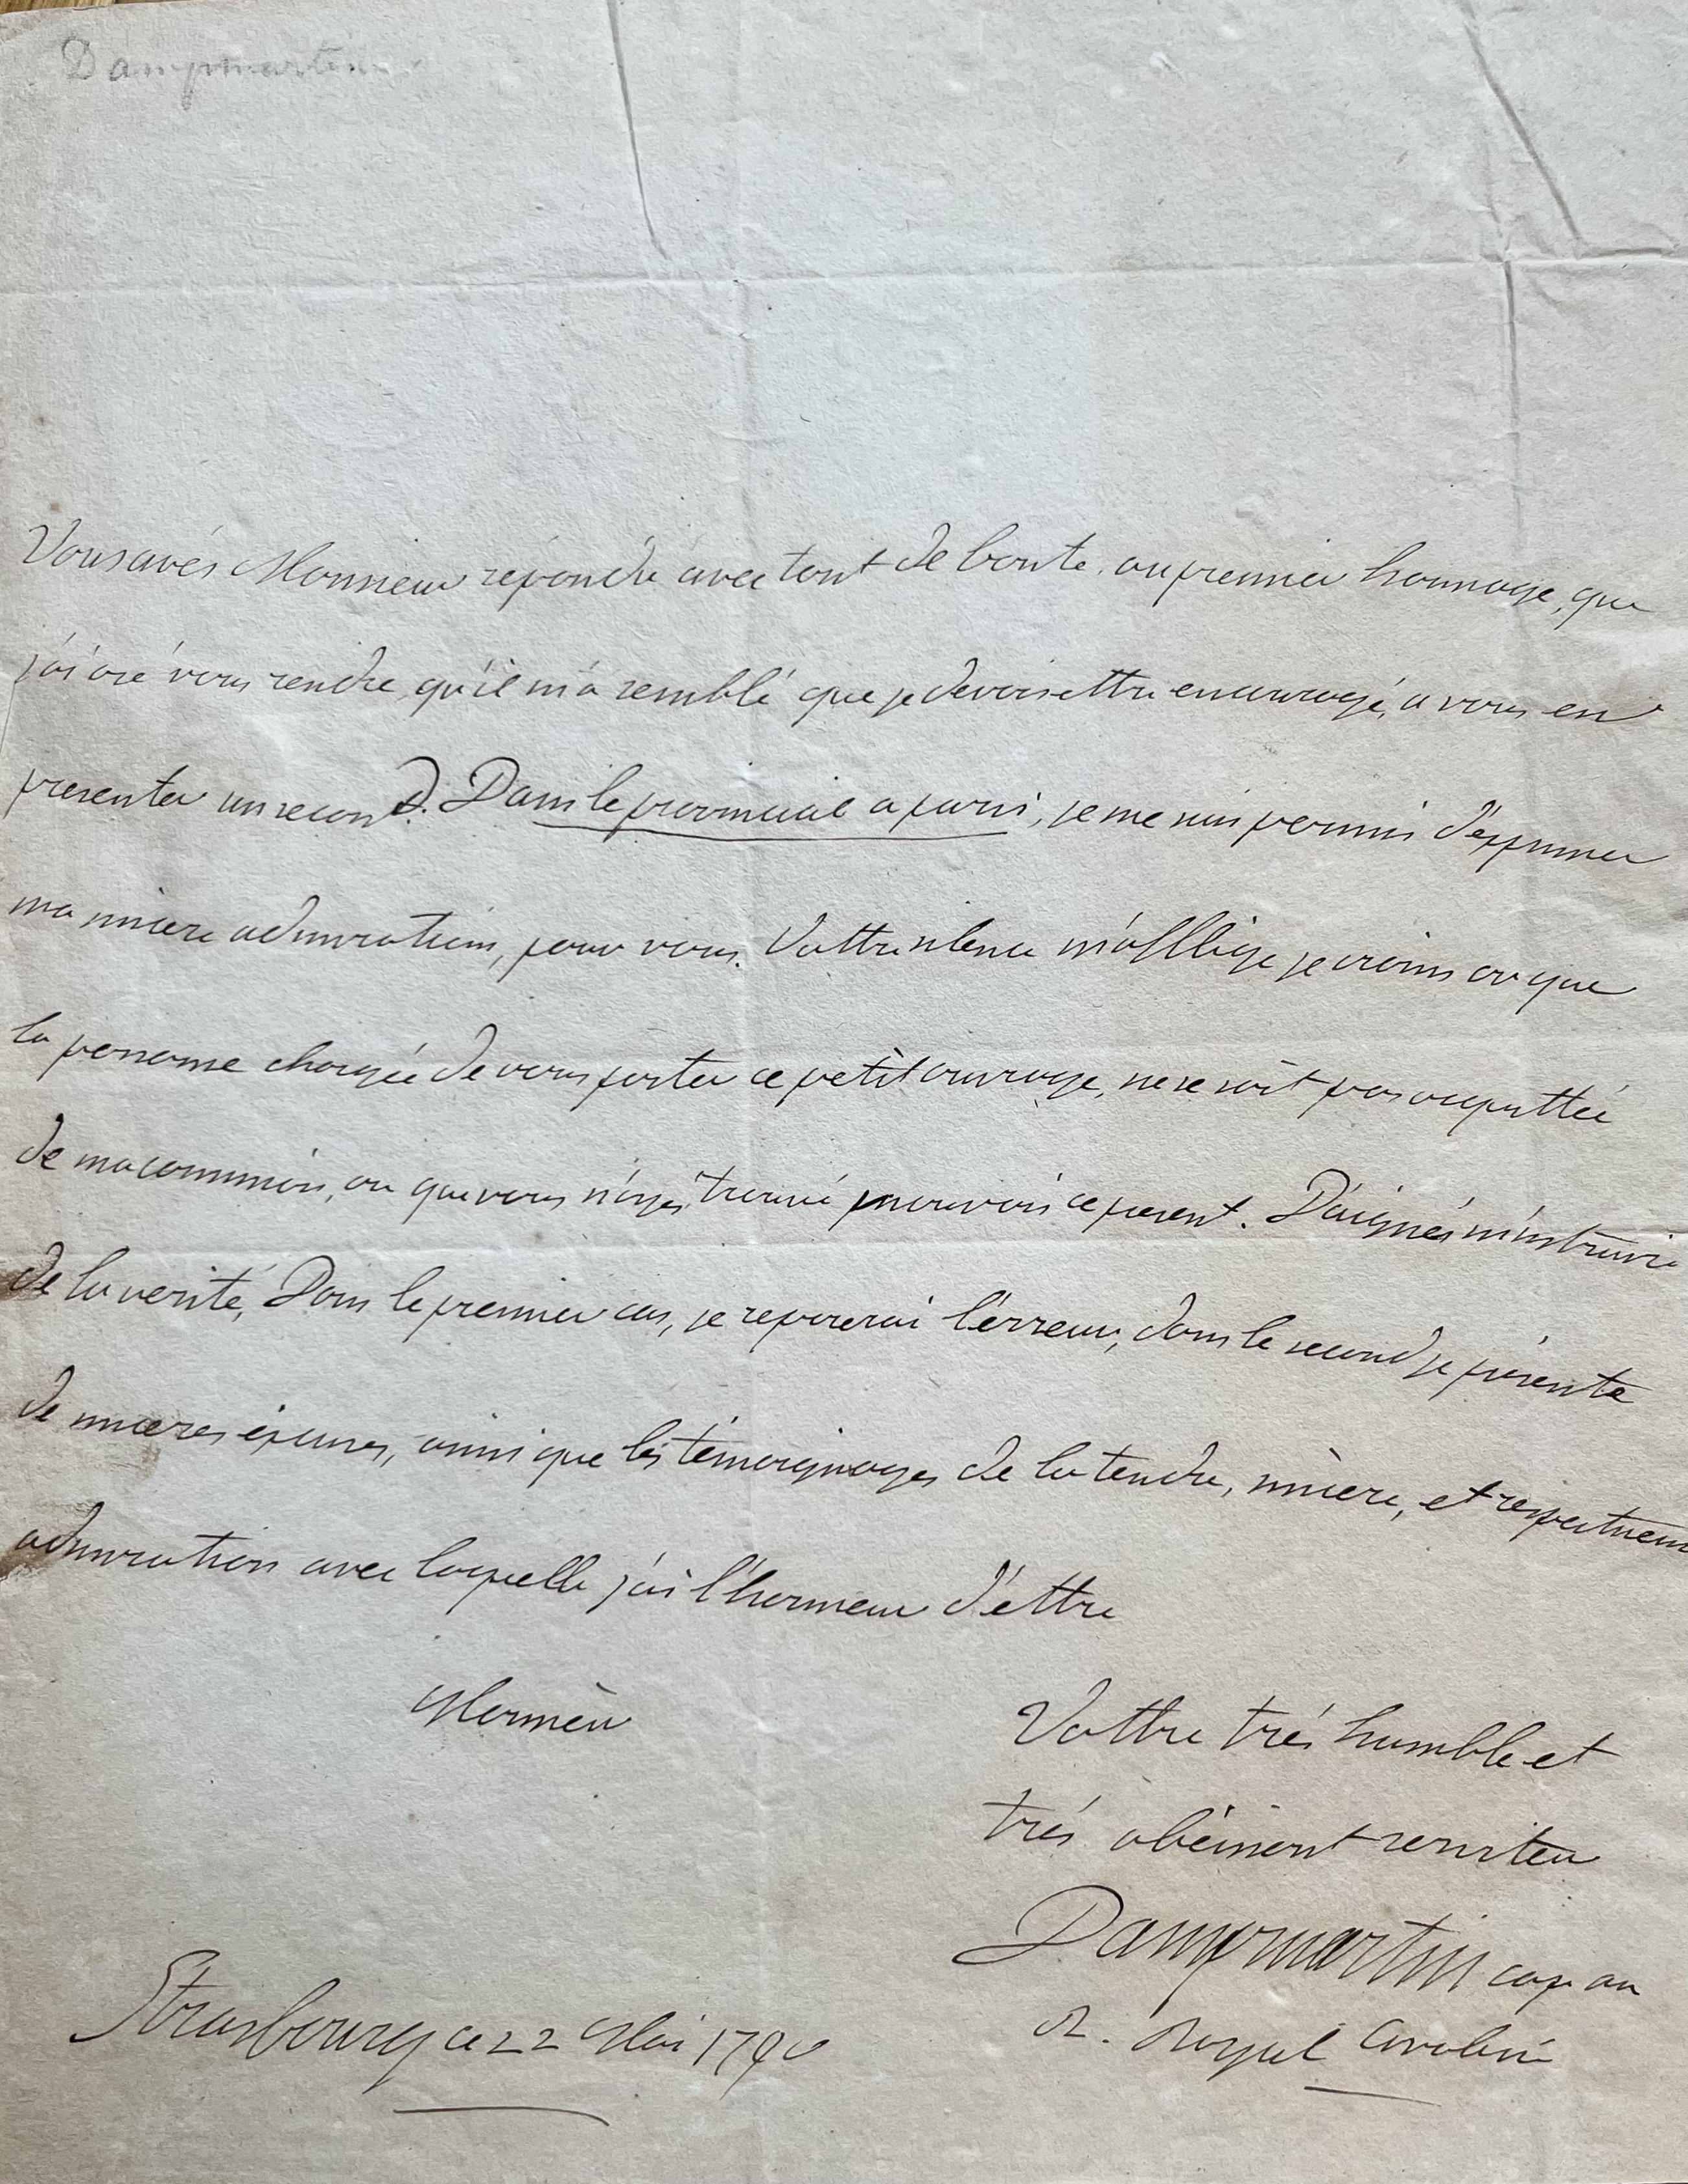 Dampmartin
Vous avés Monsieur répondu avec tant de bonté, au premier hommage, que
j'ai osé vous rendre, qu'il m'a semblé que je devois ettre encouragé, a vous en
presenter un second. Dans le provincial a paris, je me suis permis d'exprimer
ma sincere admiration, pour vous. Vottre silence m'affllige je crains ou que
la personne chargée de vous porter ce petit ouvrage, ne se soit pas acquittée
de ma commission, ou que vous n'ayés trouvé mauvais ce present. Daignés m'instruire
de la verité, Dans le premier cas, je reparerai l'erreur, dans le second je présente
de sinceres éxcuses, ainsi que les témoignages de la tendre, sincere, et respectueuse
admiration avec laquelle j'ai l'honneur d'ettre
Monsieur
Vottre trés humble et
trés obéissant serviteur
Dampmartin cap au
R. Royal Cavalerie
Strasbourg ce 22 Mai 1790